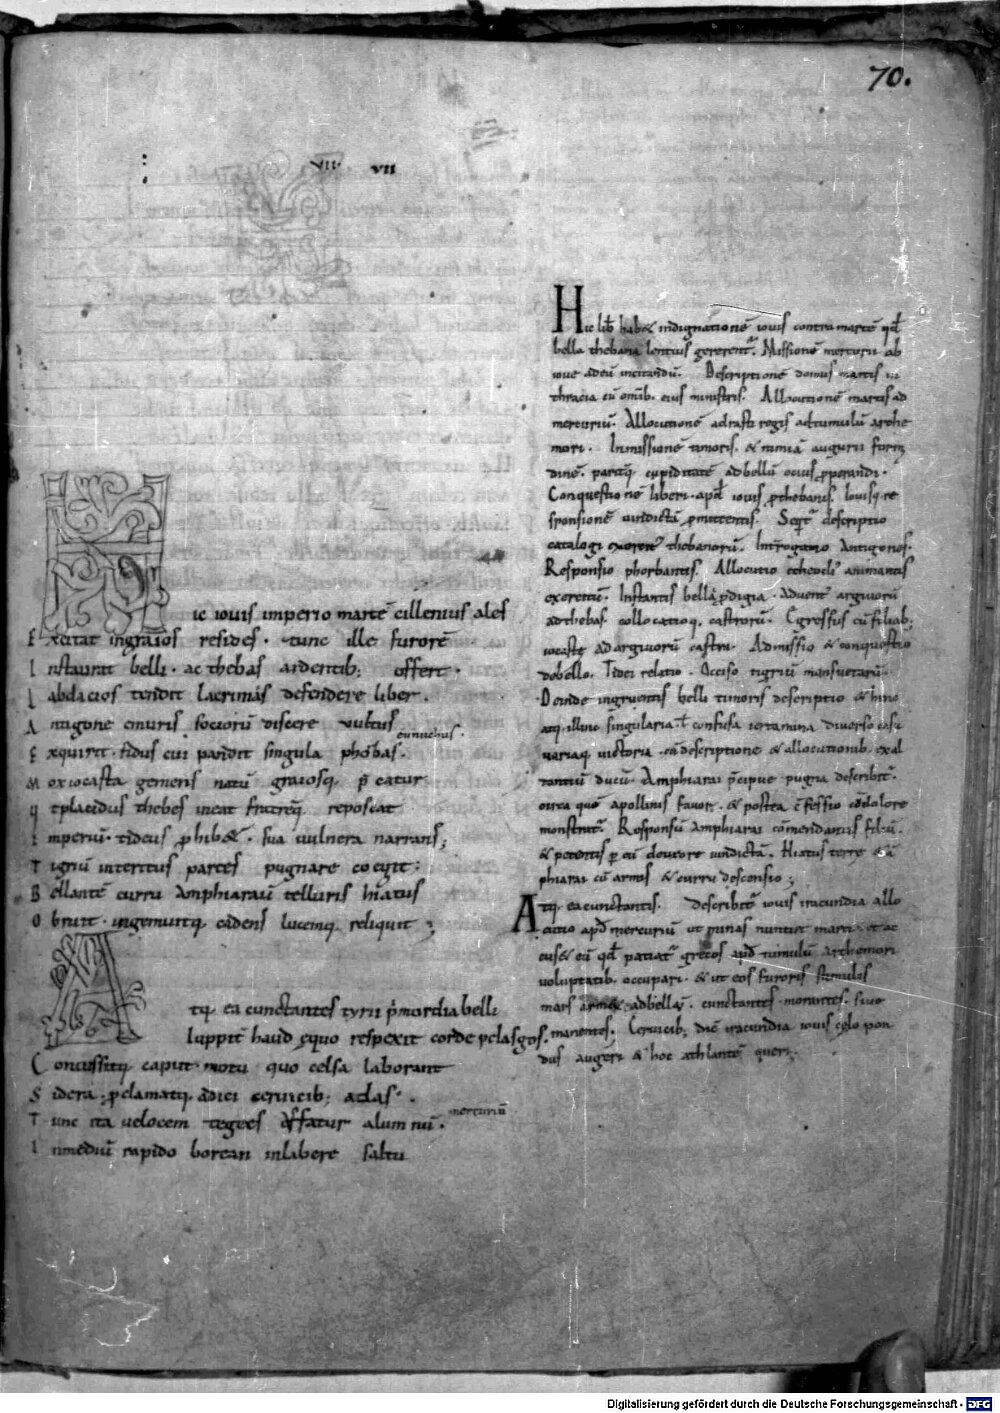 70.
VII. VII
Hic iouis imperio martē cillenius ales
Excitat in graios resides. tunc ille furorē
Instaurat belli. ac thebas ardentib; offert.
Labdacios tendit lacrimās defendere liber.
Antigone muris socioru discere uultus
eunuchus.
Exquirit. fidus cui pandit singula phorbas.
Mox iocasta gemens natū graiosq; p̄catur
Ut placidus thebes ineat fratrēq; reposcat
Imperiū. tideus ꝓhib&. sua uulnera narrans;
Tigriū interitus partes pugnare coegit:
Bellantē curru Amphiaraū telluris hiatus
Obruit. ingemuitq; cadens lucemq; reliquit;
Atq; ea cunctantes tyrii p̄mordia belli
Iuppit̄ haud ęquo respexit corde pelasgos.
Concussitq; caput. motu quo celsa laborant
Sidera; ꝓclamatq; adici ceruicib; atlas.
mercuriū
Tunc ita uelocem tegees affatur alumnū.
I mediū rapido borean inlabere saltu
Hic lib̄ hab& indignationē iouis contra martē qd̄
bella thebana lentius gererent̄. Missionē mercurii ab
ioue ad eū incitandū. Descriptionē domus martis in
thracia cū omīb. eius ministris. Allocutionē martis ad
mercuriū. Allocutionē adrasti regis ad tumulū arche
mori. Inmissionē timoris. & nimiā augurii formi
dinē. parit̄q; cupiditatē ad bellū ocius ꝓperandi.
Conquestionē liberi. apd̄ iouis ꝓ thebanis. Iouisq; re
sponsionē uindictā ꝓmittentis. Seqt̄ descriptio
catalogi exercit̄ thebanorū. Int̄rogatio Antigones.
Responsio phorbantis. Allocutio etheocli animantis
exercitū. Instantis belli ꝓdigia. Aduent̄ argiuorū
ad thebas. collocatioq; castrorū. Egressus cū filiab;
iocastę ad argiuorū castra. Admissio & conquestio
de bello. Tidei relatio. Occiso tigriū mansuetarū.
Deinde ingruentis belli timoris descriptio & hinc
atq; illinc singularia. ł confusa certamina diuerso casu
uariaq; uictoria. cū descriptione & allocutionib. exal
tantiū ducū. Amphiarai p̄cipue pugna describit̄.
circa quē apollinis fauor. & postea c̄fessio cū dolore
monstrat̄. Responsū Amphiarai cōmendantis filiū.
& petentis ꝑ eū de uxore uindictā. Hiatus terre & ā
phiarai cū armis & curru descensio;
Atq; ea cunctantis. Describit̄ iouis iracundia allo
cutio apd̄ mercuriū ut p̄mas nuntiet marti. et ac
cus& eū qd̄ patiat̄ grecos apd̄ tumulū Archemori
uoluptatib. occupari. & ut eos furoris stimulis
mars arm& ad bella. cunctantes. morantes. siue
manentes. Ceruicib; dic̄ iracundia iouis cęlo pon
dus augeri & hoc athlantē queri.
Digitalisierung gefördert durch die Deutsche Forschungsgemeinschaft - DFG